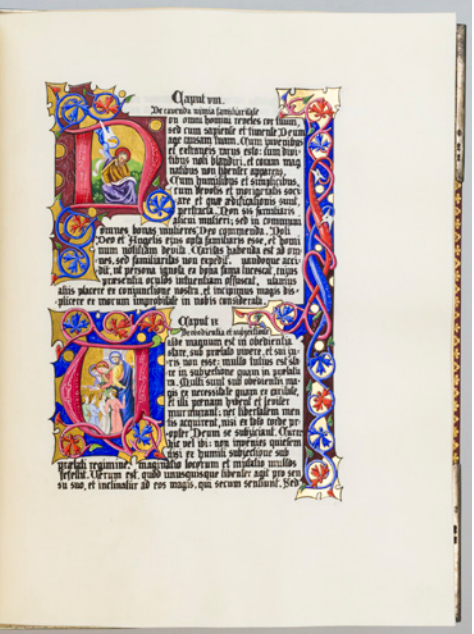 Caput viii.
De cavenda nimia familiaritate
Non omni homini reveles cor tuum,
sed cum sapiente et timente Deum
age causam tuam. Cum juvenibus
et extraneis rarus esto: cum divi
tibus noli blandiri, et coram mag
natibus non libenter appareas.
Cum humilibus et simplicibus,
cum devotis et morigeratis soci
are et quæ ædificationis sunt,
pertracta. Non sis familiaris
alicui mulieri; sed in communi
omnes bonas mulieres Deo commenda. Soli
Deo et Angelis ejus opta familiaris esse, et homi
num notitiam devita. Caritas habenda est ad om
nes, sed familiaritas non expedit. uandoque acci
dit, ut persona ignota ex bona fama lucescat, cujus
præsentia oculos intuentium offuscat.
aliis placere ex conjunctione nostra, et incipimus magis dis
plicere ex morum improbitate in nobis considerata.
Caput ix
De obedientia et subjectione
Valde magnum est in obedientia
stare, sub prælato vivere, et sui ju
ris non esse: multo tutius est sta
re in subjectione quam in prælatu
ra. Multi sunt sub obedientia ma
gis ex necessitate quam ex caritate,
et illi pœnam habent et leviter
murmurant; nec libertatem men
tis acquirent, nisi ex toto corde pr
opter Deum se subjiciant. Curre
hic vel ibi: non invenies quietem
nisi ex humili subjectione sub
prælati regimine. maginatio locorum et mutatio multos
fefellit. Verum est, quod unusquisque libenter agit pro sen
su suo, et inclinatur ad eos magis, qui secum sentiunt. Sed